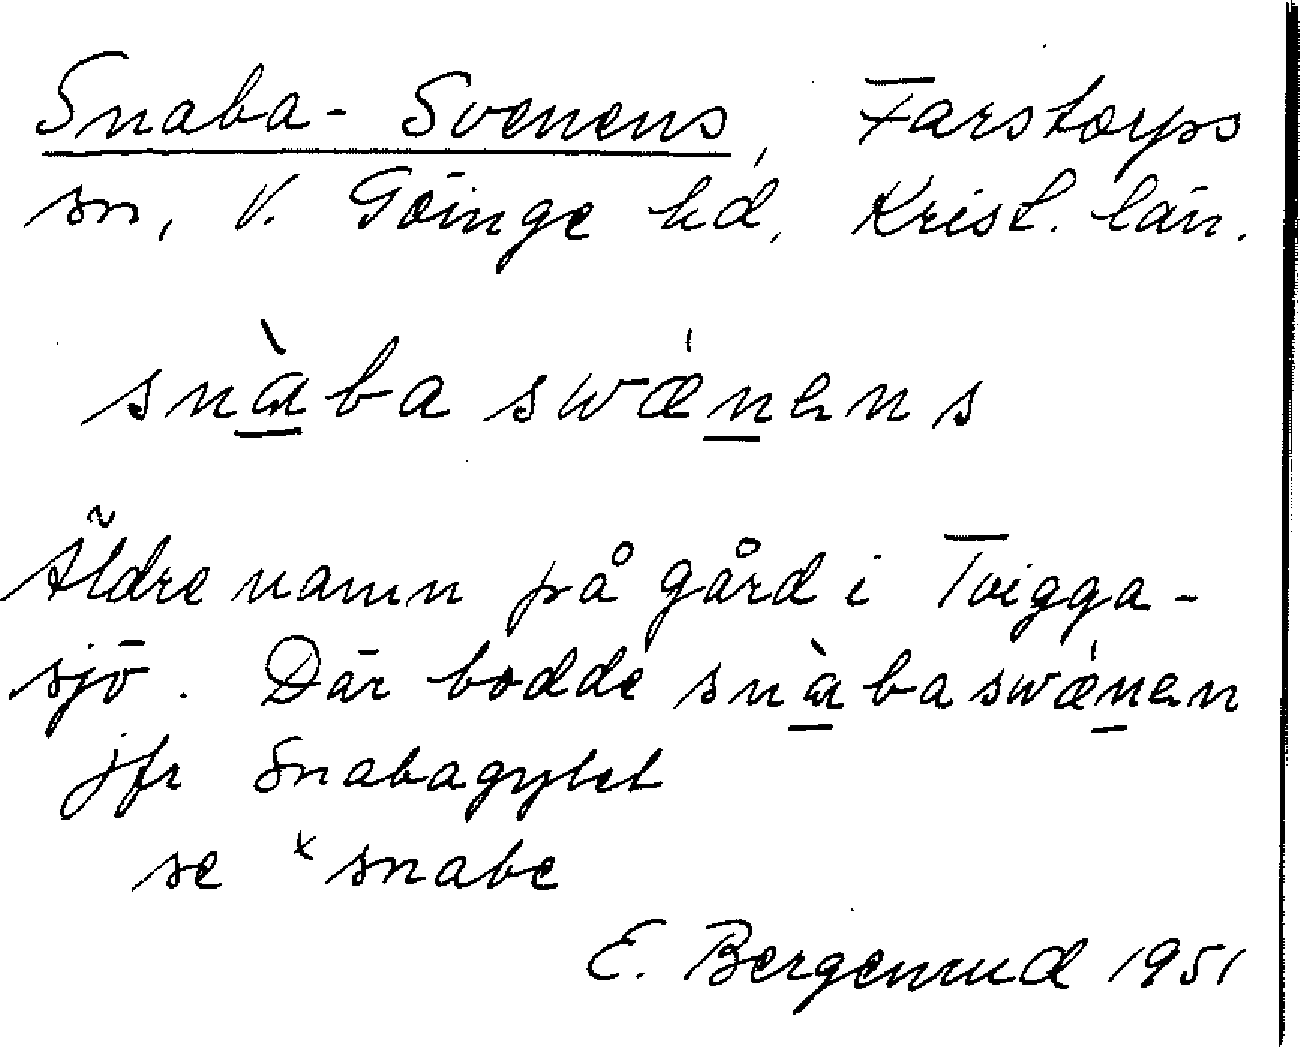 Snaba-Svenens, Farstorps
sn, V. Göinge hd, Krist. län.
snàba swǽnens
Äldre namn på gård i Tvigga-
sjö. Där bodde snàbaswǽnen
jfr Snabagylet
se *snabe
E. Bergenrud 1951